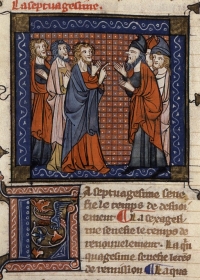 La septuagesime.
La septuagesime sene
fie le temps de desuoi
ement La sexagesi
me senefie le temps de
renouuelement. La qui
quagesime senefie
de remission La qua